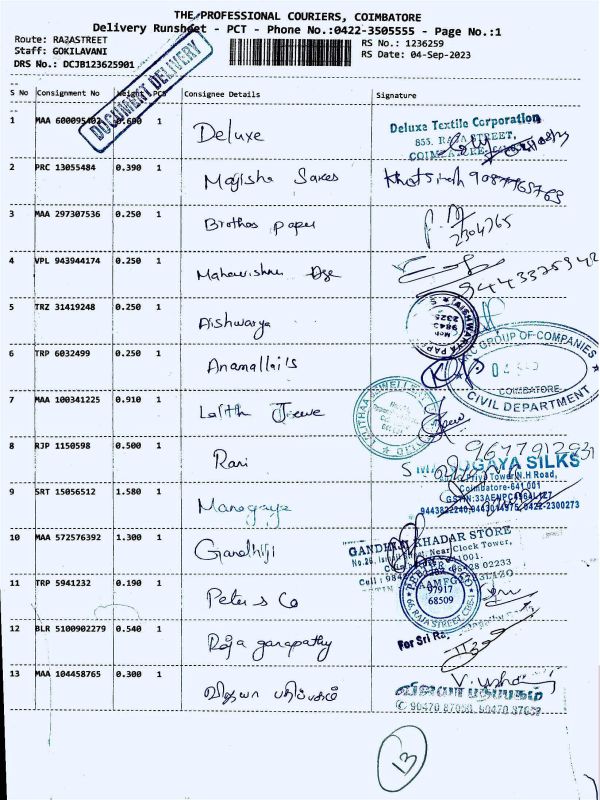 THE PROFESSIONAL COURIERS, COIMBATORE
Delivery Runsheet - PCT - Phone No.:0422-3505555 - Page No.:1
Route: RAJASTREET
RS No.: 1236259
Staff: GOKILAVANI
RS Date: 04-Sep-2023
DRS No.: DCJB123625901
DOCUMENT DELIVERY
S No Consignment No Weight PCS Consignee Details Signature
1 MAA 600095402 0.600 1 Deluxe
Deluxe Textile Corporation
855, RAJA STREET,
2 PRC 13055484 0.390 1
3 MAA 297307536 0.250 1 Brothos paper
4 VPL 943944174 0.250 1 Mahavishnu
9443325942
5 TRZ 31419248 0.250 1 Aishwarya
6 TRP 6032499 0.250 1 Anamallai's
GROUP OF COMPANIES
COIMBATORE
CIVIL DEPARTMENT
7 MAA 100341225 0.910 1 Lalith
8 RJP 1150598 0.500 1 Rani
9677912931
9 SRT 15056512 1.580 1 Manogaya
GAYA SILKS
Tower, N.H Road,
Coimbatore-641 001
0422-2300273
10 MAA 572576392 1.300 1 Gandhiji
GANDHIJI KHADAR STORE
Near Clock Tower,
11 TRP 5941232 0.190 1 Peter & Co
97917
68509
12 BLR 5100902279 0.540 1 Raja ganapathy
For Sri
13 MAA 104458765 0.300 1 விஜயா பதிப்பகம்
விஜயா பதிப்பகம்
13